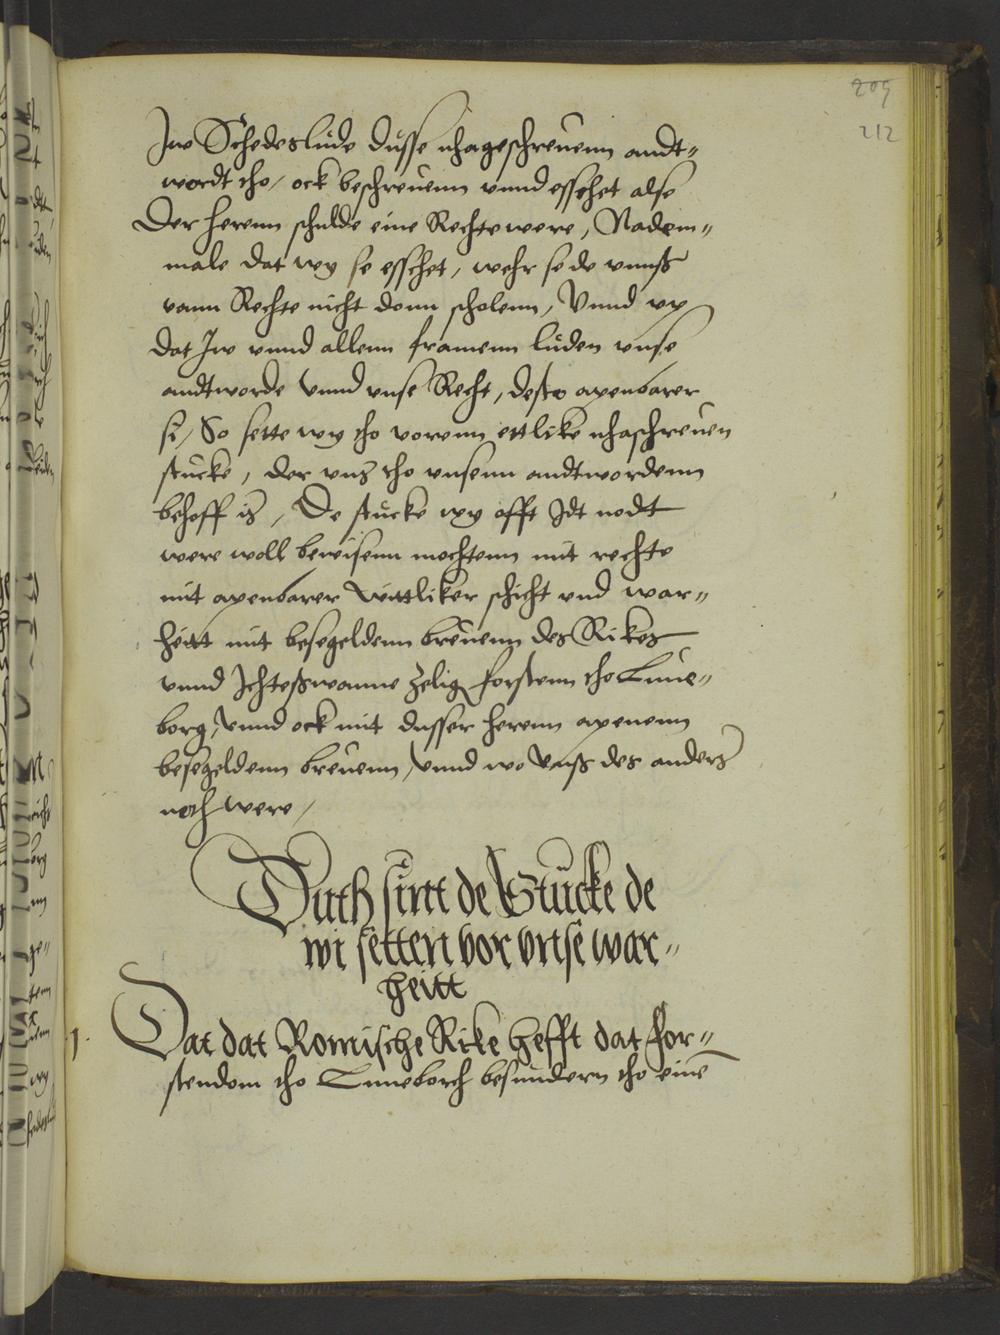 209
212
Jw Schedeslude dusse nhageschreuenn andt-
wordt tho, ock beschreuenn vnnd esschet alse
Der herenn schulde eine Rechte were, Nadem-
male dat wy se esschet, wehr se de vnnß
vann Rechte nicht donn scholenn, Vnnd vp
dat Jw vnnd allenn framenn luden vnse
andtworde Vnnd vnse Recht, desto apenbarer
si, So sette wy tho vorenn ettlike nhaschreuen
stucke, der vns tho vnsenn andtwordenn
behoff is, De stucke wy offt Jdt nodt
were woll bewisenn mochtenn mit rechte
mit apenbarer Wittliker schicht vnd war-
heitt mit besegeldenn breuenn des Rikes
vnnd Jchteßwanne zelig forstenn tho Lune-
borg, Vnnd ock mit dusser herenn apenenn
besegeldenn breuenn, Vnnd wo Vnß des anders
noth were,
Duth sint de Stucke de
wi setten vor vnse war-
heitt
1. Dat dat Romische Rike hefft dat For-
stendom tho Luneborch besundern tho eine